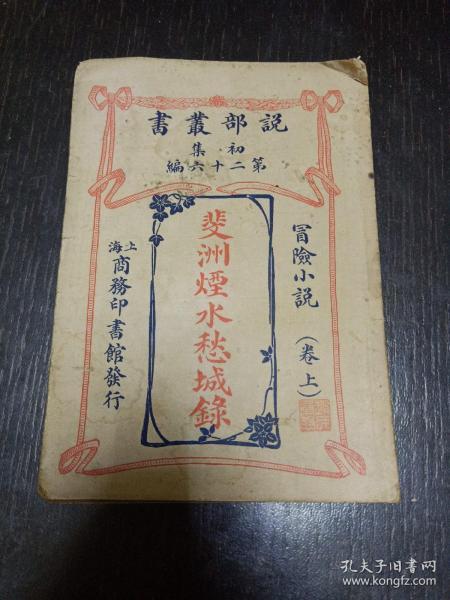 説部叢書
初集
第二十六編
冒險小説
(卷上)
斐洲煙水愁城錄
上海
商務印書館發行
孔夫子旧书网
www.kongfz.com